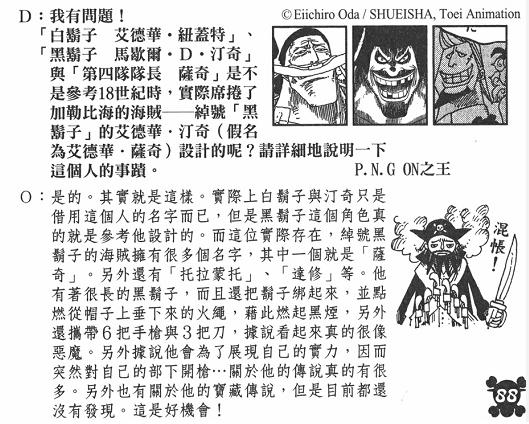 ©Eiichiro Oda / SHUEISHA, Toei Animation
D：我有問題！
「白鬍子　艾德華・紐蓋特」、
「黑鬍子　馬歇爾・D・汀奇」
與「第四隊隊長　薩奇」是不
是參考18世紀時，實際席捲了
加勒比海的海賊——綽號「黑
鬍子」的艾德華・汀奇（假名
為艾德華・薩奇）設計的呢？請詳細地說明一下
這個人的事蹟。
P.N.G ON之王
O：是的。其實就是這樣。實際上白鬍子與汀奇只是
借用這個人的名字而已，但是黑鬍子這個角色真
的就是參考他設計的。而這位實際存在，綽號黑
鬍子的海賊擁有很多個名字，其中一個就是「薩
奇」。另外還有「托拉蒙托」、「達修」等。他
有著很長的黑鬍子，而且還把鬍子綁起來，並點
燃從帽子上垂下來的火繩，藉此燃起黑煙，另外
還攜帶6把手槍與3把刀，據說看起來真的很像
惡魔。另外據說他會為了展現自己的實力，因而
突然對自己的部下開槍…關於他的傳說真的有很
多。另外也有關於他的寶藏傳說，但是目前都還
沒有發現。這是好機會！
混帳！
88